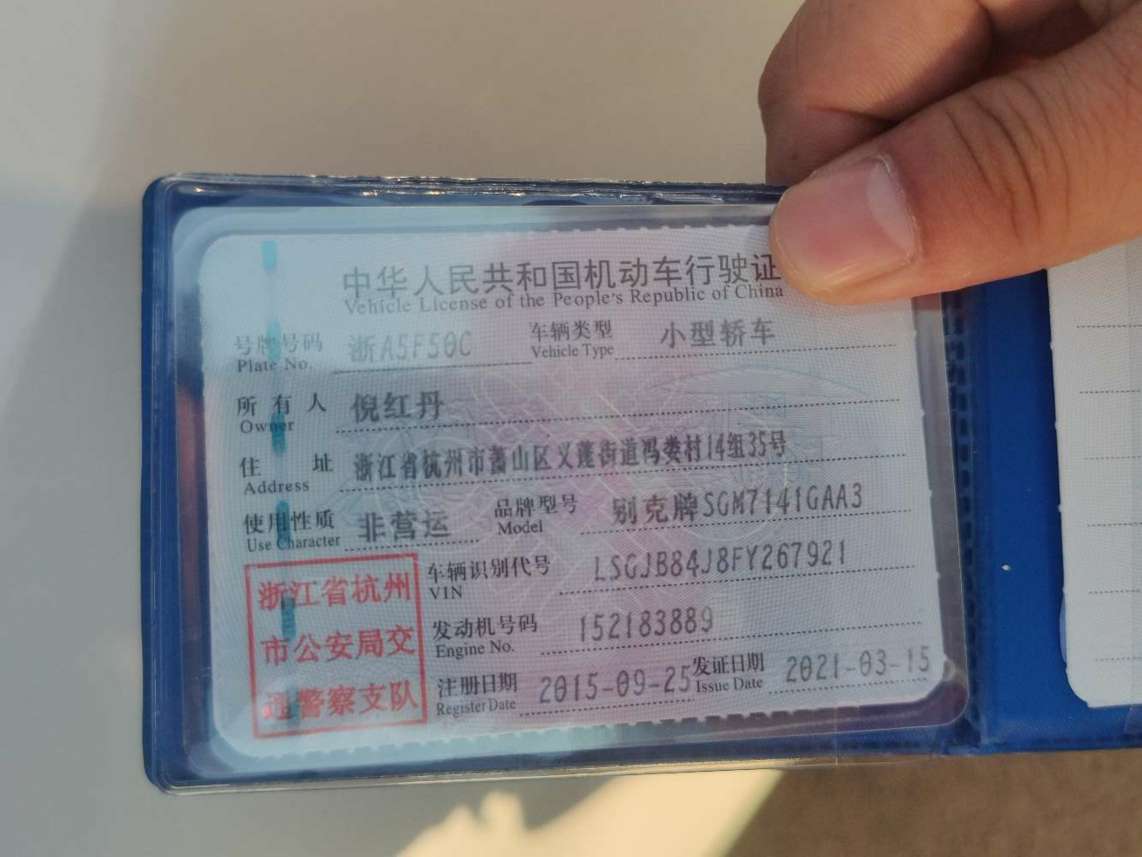 中华人民共和国机动车行驶证
Vehicle License of the People's Republic of China
号牌号码 浙A5F50C 车辆类型 小型轿车
Plate No. Vehicle Type
所有人 倪红丹
Owner
住址 浙江省杭州市萧山区义蓬街道冯娄村14组35号
Address
使用性质 非营运 品牌型号 别克牌SGM7141GAA3
Use Character Model
车辆识别代号 LSGJB84J8FY267921
VIN
发动机号码 152183889
Engine No.
注册日期 2015-09-25 发证日期 2021-03-15
Register Date Issue Date
浙江省杭州
市公安局交
通警察支队